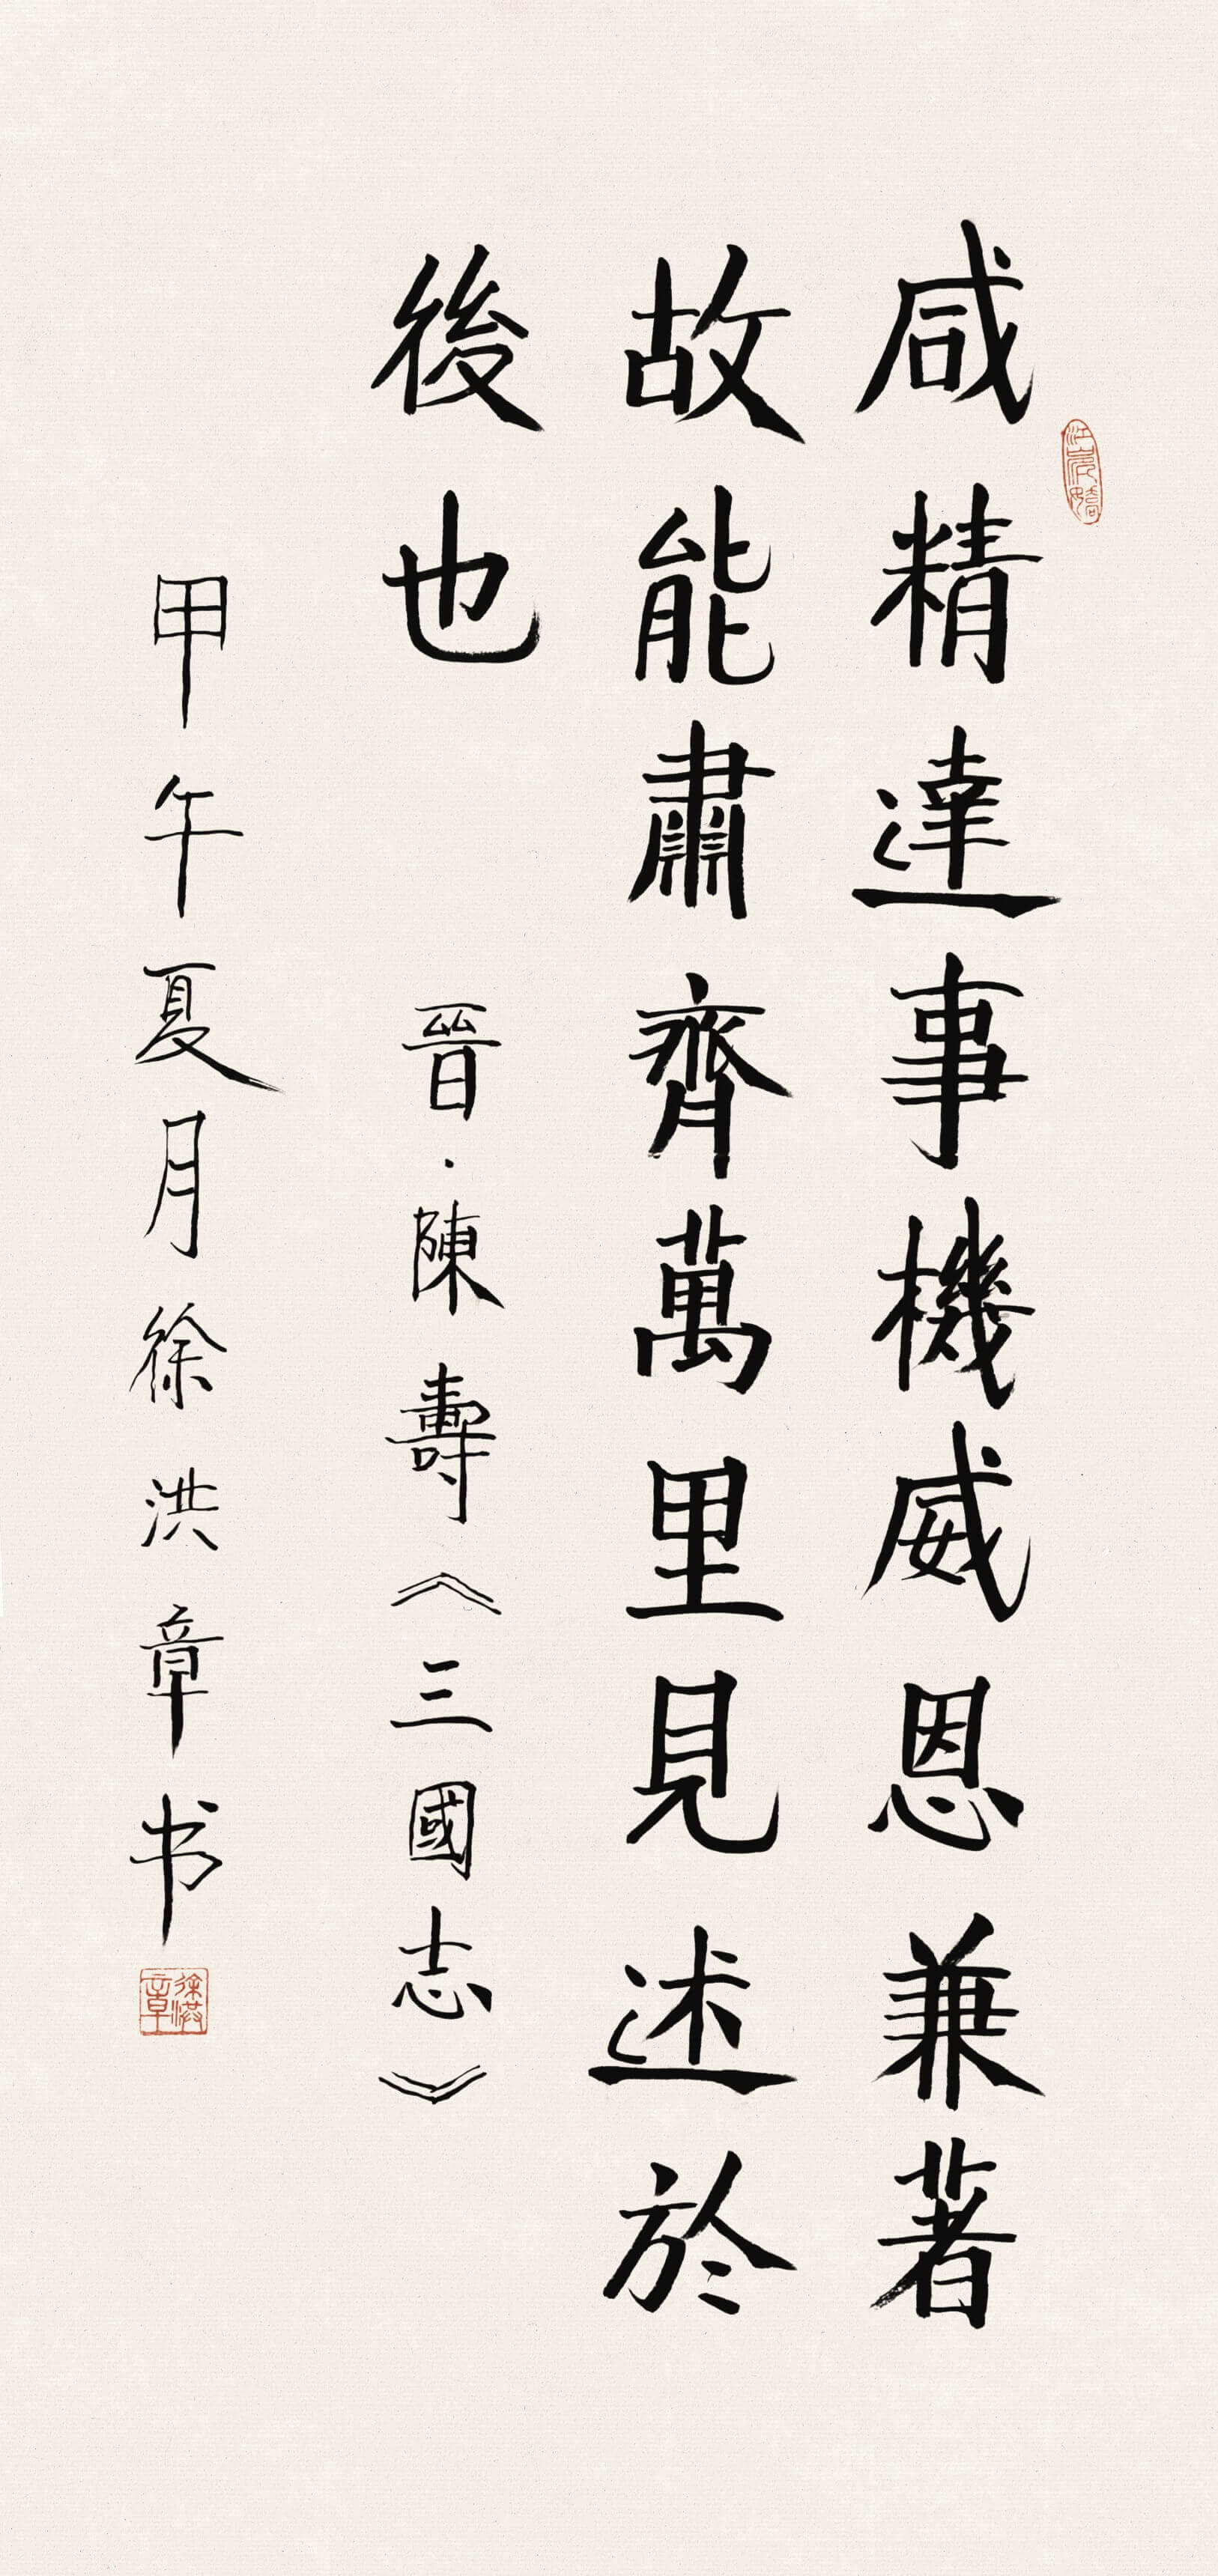 咸精達事機威恩兼著
故能肅齊萬里見述於
後也
晉·陳壽《三國志》
甲午夏月徐洪章书
徐洪章